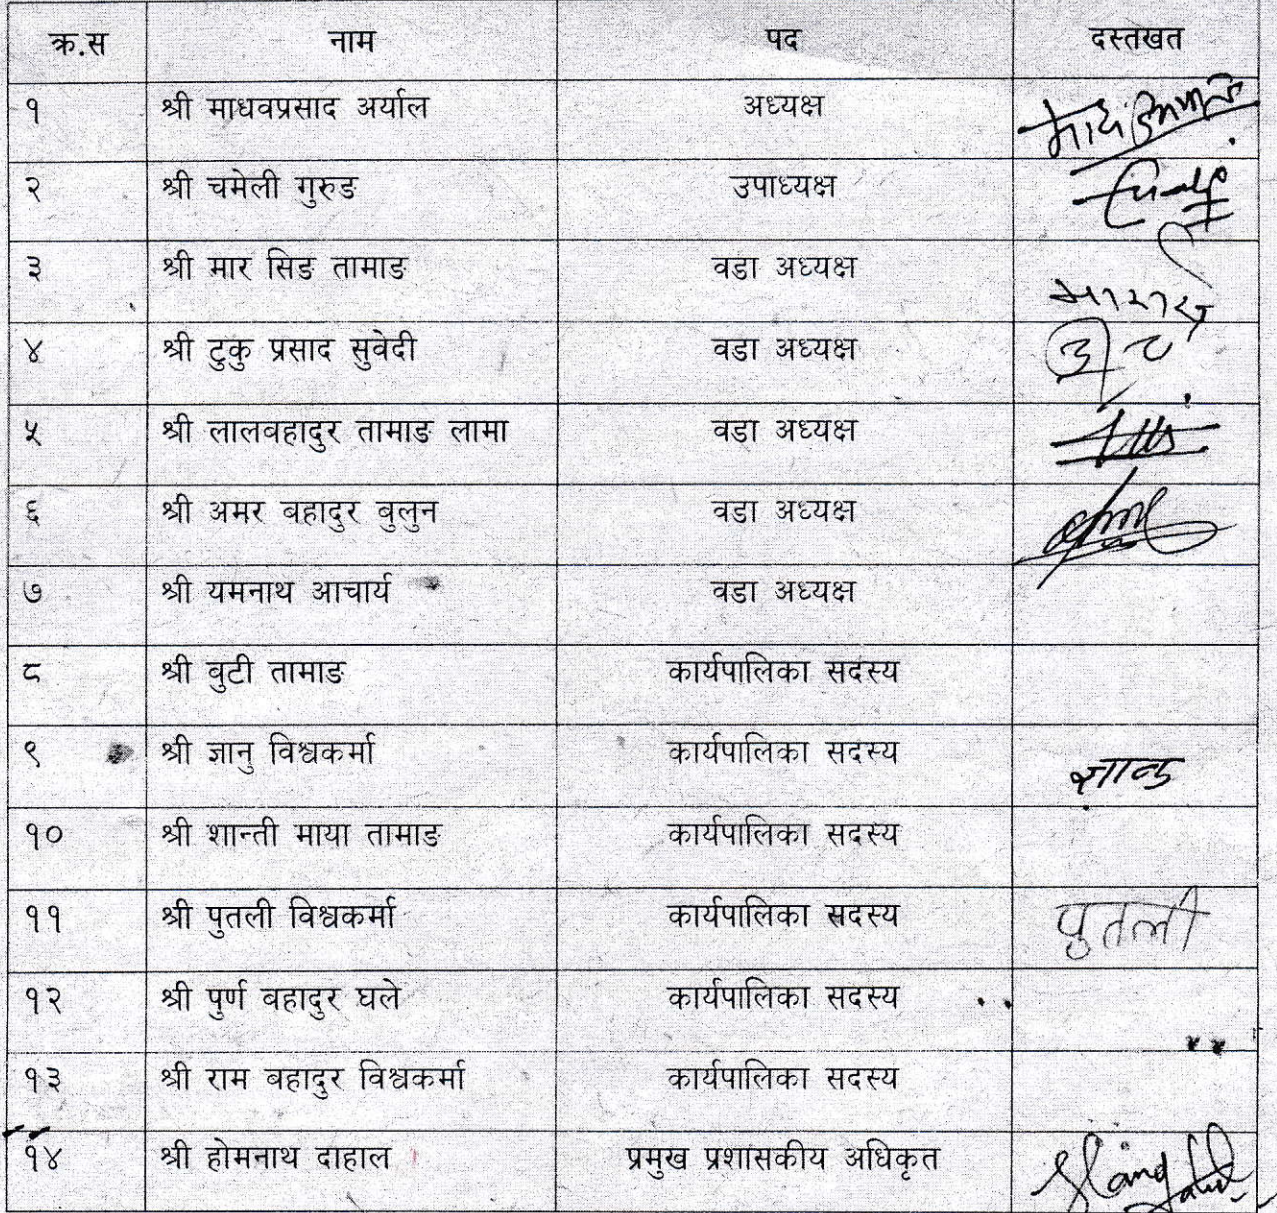 क्र.स नाम पद दस्तखत
१ श्री माधवप्रसाद अर्याल अध्यक्ष
२ श्री चमेली गुरुङ उपाध्यक्ष
३ श्री मार सिङ तामाङ वडा अध्यक्ष
४ श्री टुकु प्रसाद सुवेदी वडा अध्यक्ष
५ श्री लालबहादुर तामाङ लामा वडा अध्यक्ष
६ श्री अमर बहादुर बुलुन वडा अध्यक्ष
७ श्री यमनाथ आचार्य वडा अध्यक्ष
८ श्री वुटी तामाङ कार्यपालिका सदस्य
९ श्री ज्ञानु विश्वकर्मा कार्यपालिका सदस्य
१० श्री शान्ती माया तामाङ कार्यपालिका सदस्य
११ श्री पुतली विश्वकर्मा कार्यपालिका सदस्य पुतली
१२ श्री पुर्ण बहादुर घले कार्यपालिका सदस्य
१३ श्री राम बहादुर विश्वकर्मा कार्यपालिका सदस्य
१४ श्री होमनाथ दाहाल प्रमुख प्रशासकीय अधिकृत